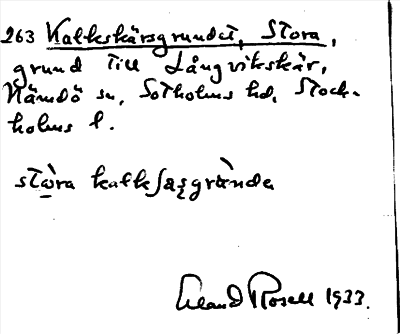 263 Kalkskärsgrundet, Stora,
grund till Långvikskär,
Nämdö sn, Sotholms hd, Stock-
holms l.
stora kalkʃærgrùndə
Erland Rosell 1933.